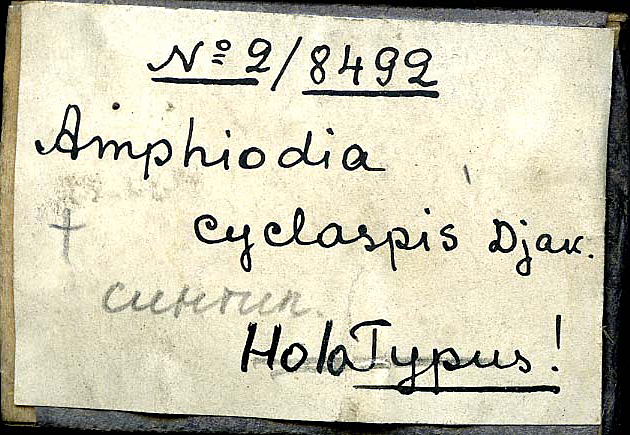 № 2/8492
Amphiodia
cyclaspis Djak.
синтип.
HoloTypus!